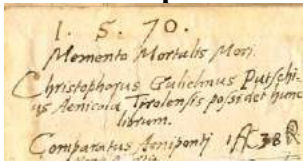 1. 5. 70.
Memento Mortalis Mori.
Christophorus Gulielmus Putschi-
us Aenicola, Tirolensis possidet hunc
librum.
Comparatus Aeniponti 38